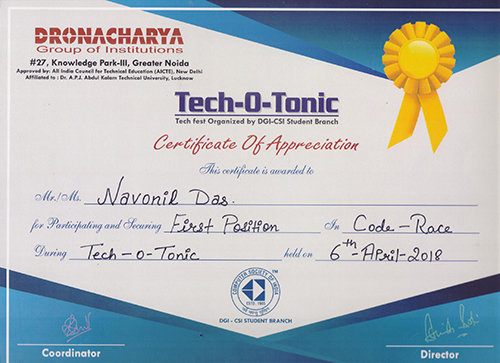 DRONACHARYA
Group of Institutions
#27, Knowledge Park-III, Greater Noida
Approved by: All India Council for Technical Education (AICTE), New Delhi
Affiliated to : Dr. A.P.J. Abdul Kalam Technical University, Lucknow
Tech-O-Tonic
Tech fest Organized by DGI-CSI Student Branch
Certificate Of Appreciation
This certificate is awarded to
Mr./Ms. Navonil Das.
for Participating and Securing First Position In Code-Race
During Tech-o-Tonic held on 6th-April-2018
COMPUTER SOCIETY OF INDIA
ESTD. 1965
TM
DGI - CSI STUDENT BRANCH
Coordinator
Director